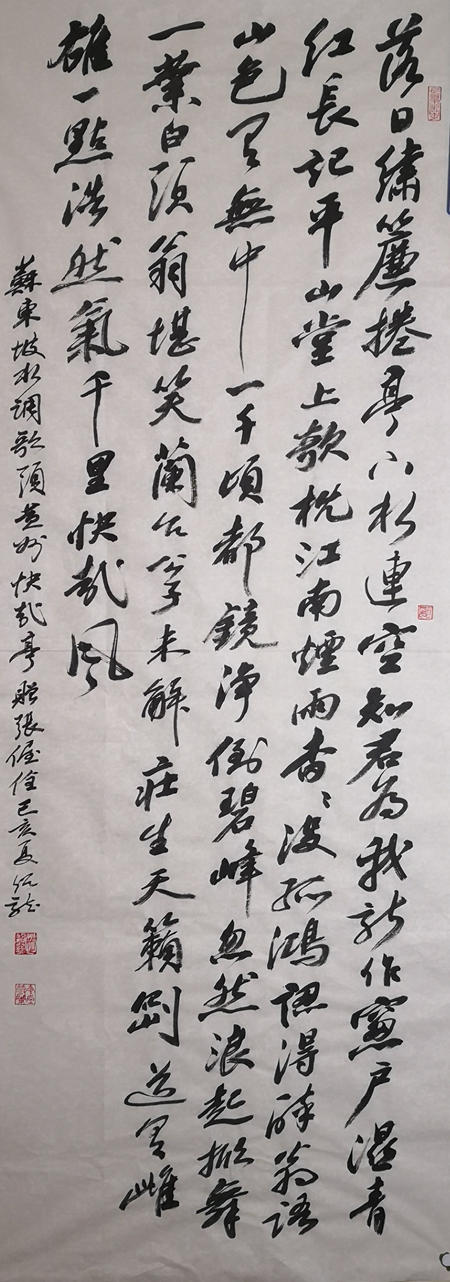 落日繡簾捲亭下水連空知君為我新作窻戶濕青
紅長記平山堂上欹枕江南煙雨杳〻沒孤鴻認得醉翁語
山色有無中一千頃都鏡淨倒碧峰忽然浪起掀舞
一葉白頭翁堪笑蘭台公子未解莊生天籟剛道有雌
雄一點浩然氣千里快哉風
蘇東坡水調歌頭黃州快哉亭贈張偓佺己亥夏